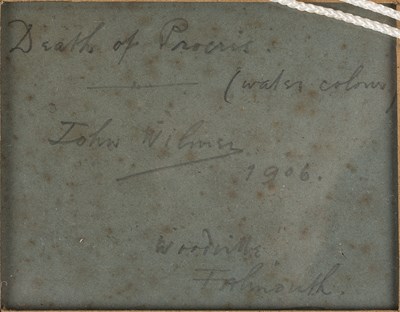 Death of Procris.
(water colour)
John Wilmer
1906.
Woodville
Falmouth.